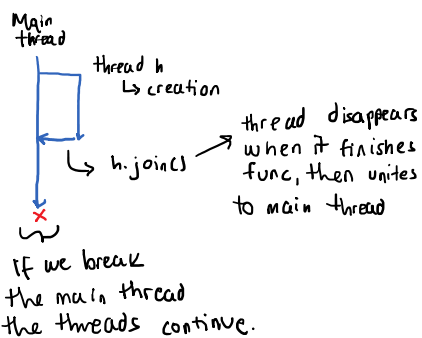 Main
thread
thread h
↳ creation
h.join()
thread disappears
when it finishes
func, then unites
to main thread
if we break
the main thread
the threads continue.